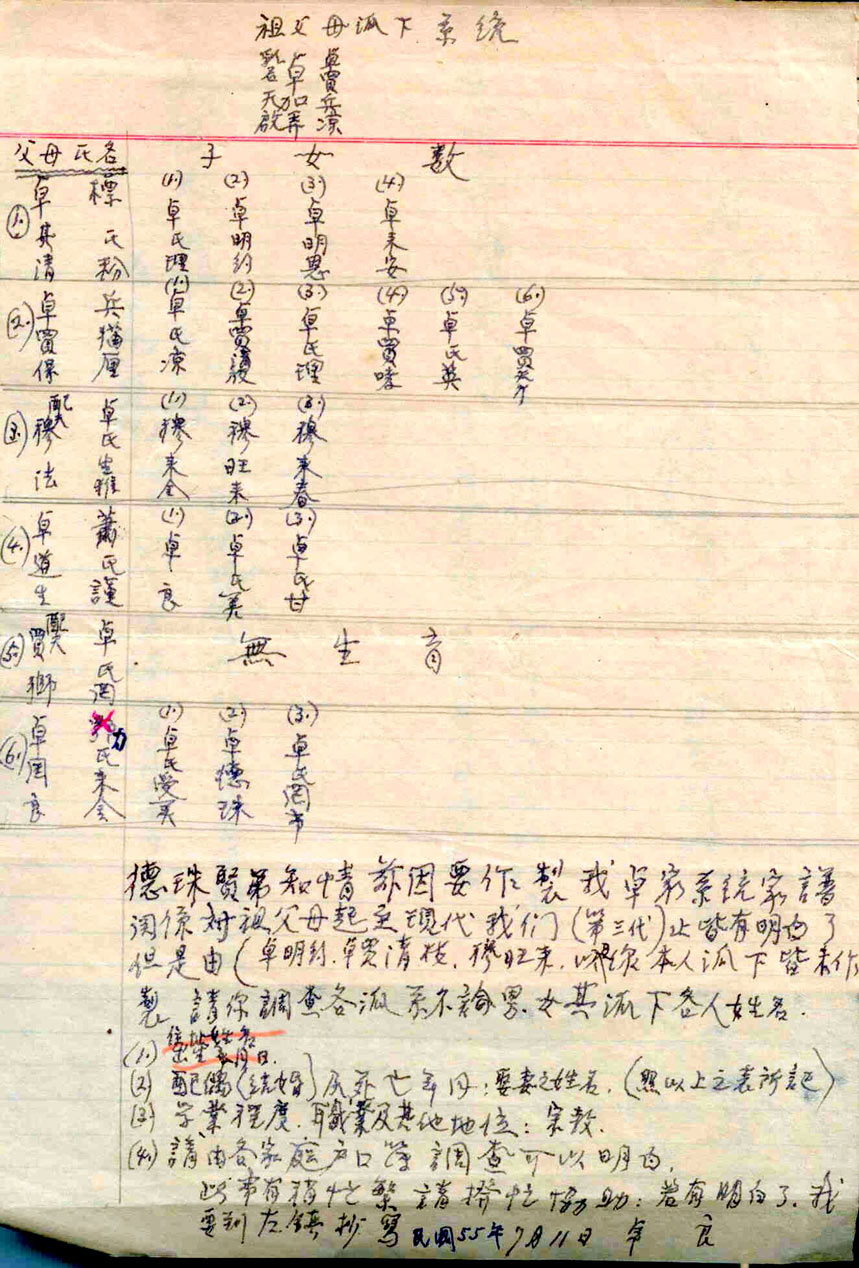 祖父母派下系統
卓賈兵凉
卓加弄
父母氏名 子女數
(1.) 卓其清 標氏粉 (1.)卓氏理 (2.)卓明約 (3.)卓明恩 (4.)卓未安
(2.) 卓買保 兵猫厘 (1.)卓氏凉 (2.)卓買清 (3.)卓氏理 (4.)卓買 (5.)卓氏英 (6.)卓買
(3.) 配夫穆法 卓氏 (1.)穆来全 (2.)穆旺来 (3.)穆来春
(4.) 卓道生 蕭氏謹 (1.)卓良 (2.)卓氏美 (3.)卓氏甘
(5.) 配夫買獅 卓氏 無生育
(6.) 卓囯良 氏来会 (1.)卓氏受美 (2.)卓德珠 (3.)卓氏
德珠賢弟知情 茲因要作製我卓家系統家譜
関係対祖父母起至現代我们(第三代)止皆有明白了
但是由(卓明約.卓買清枝.穆旺来.以及你本人派下皆未作
製 請你調查各派系不論男.女其派下各人姓名.
(1) 出生年月日.
(2) 配偶(結婚)及死亡年月:要妻之姓名.(照以上之表所記)
(3) 学業程度.職業及其他地位:宗教.
(4) 請由各家庭户口簿調查可以明白,
此事有稍忙繁 請撥忙協助:若有明白了.我
要到左鎮抄寫 民國55年7月11日 良